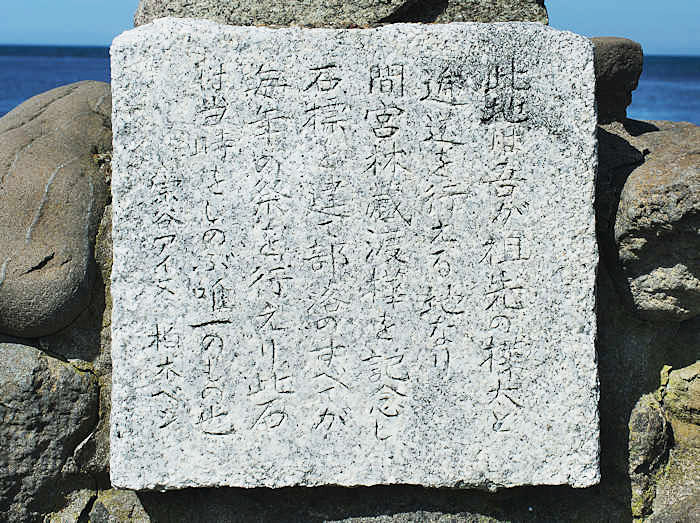 此地は吾が祖先の樺太と
迎送を行える地なり
間宮林蔵渡樺を記念し
石標を建て部落のすべてが
毎年の祭を行えり此石
は当時をしのぶ唯一のもの也
宗谷アイヌ 柏木ベン